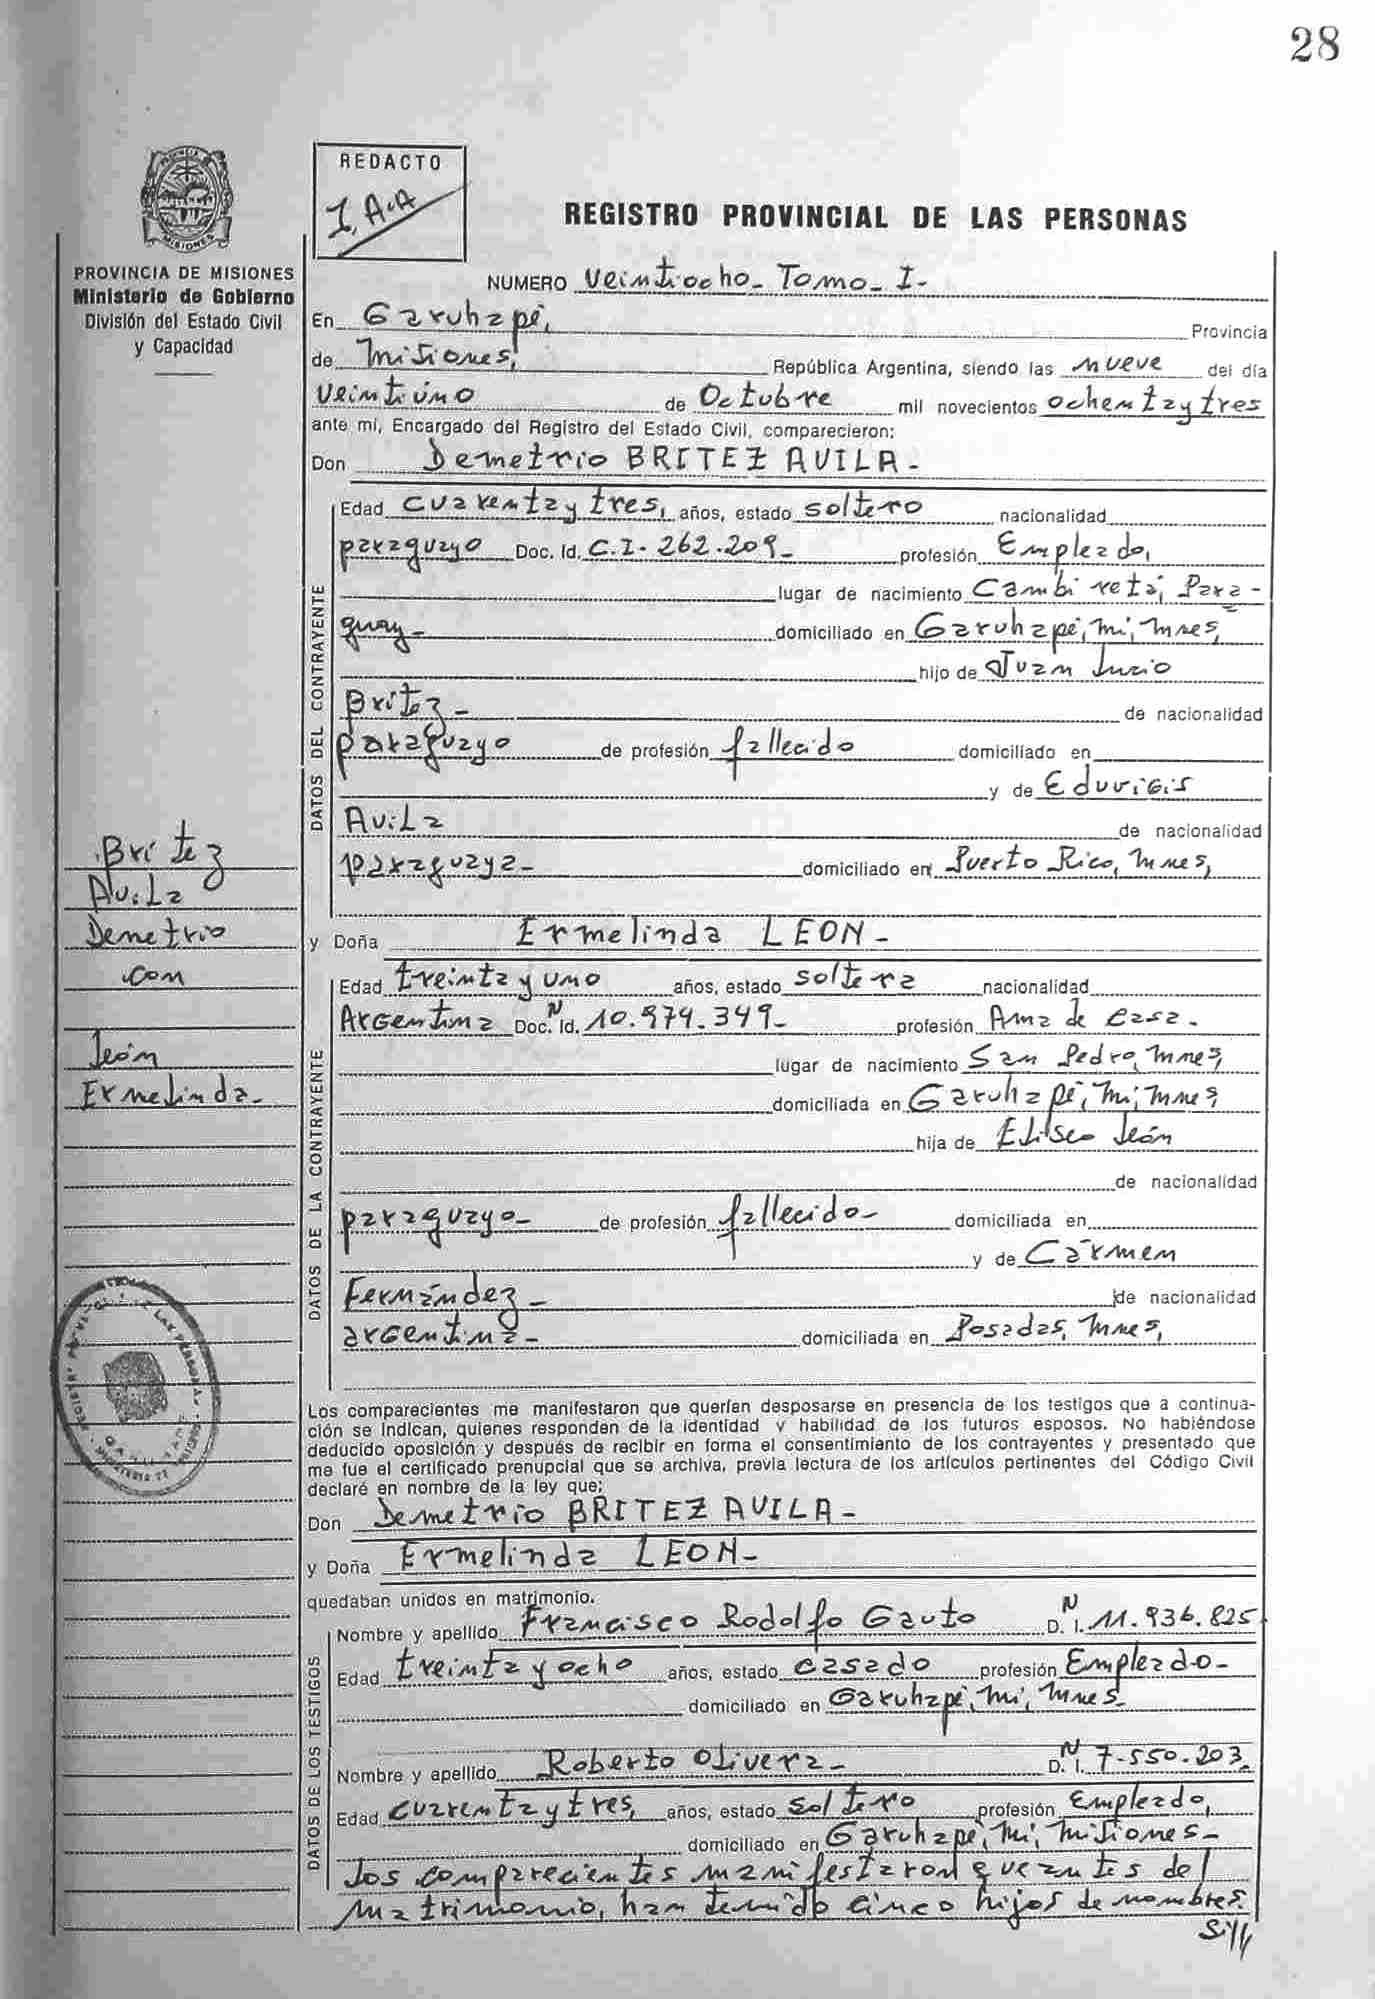 28
REDACTO
I.A.A
REGISTRO PROVINCIAL DE LAS PERSONAS
PROVINCIA DE MISIONES
Ministerio de Gobierno
División del Estado Civil
y Capacidad
NUMERO Veintiocho - Tomo - I -
En Garuhapé, Provincia
de Misiones, República Argentina, siendo las nueve del día
veintiúno de Octubre mil novecientos ochenta y tres
ante mí, Encargado del Registro del Estado Civil, comparecieron:
Don Demetrio BRITEZ AVILA -
DATOS DEL CONTRAYENTE
Edad cuarenta y tres, años, estado soltero nacionalidad
paraguayo Doc. Id. C.I. 262.209 - profesión Empleado,
lugar de nacimiento Cambi retá, Para -
guay - domiciliado en Garuhapé, Mí, Mnes,
hijo de Juan
Britez - de nacionalidad
paraguayo de profesión fallecido domiciliado en
y de Eduvigis
Avila de nacionalidad
paraguaya - domiciliado en Puerto Rico, Mnes,
Britez
Avila
Demetrio
con
León
Ermelinda -
y Doña Ermelinda LEON -
DATOS DE LA CONTRAYENTE
Edad treinta y uno años, estado soltera nacionalidad
Argentina Doc. N Id. 10.974.349 - profesión Ama de casa -
lugar de nacimiento San Pedro, Mnes,
domiciliada en Garuhapé, Mí, Mnes,
hija de Eliseo León
de nacionalidad
paraguayo - de profesión fallecido - domiciliada en
y de Cármen
Fernández - de nacionalidad
argentina - domiciliada en Posadas, Mnes,
Los comparecientes me manifestaron que querían desposarse en presencia de los testigos que a continua-
ción se indican, quienes responden de la identidad y habilidad de los futuros esposos. No habiéndose
deducido oposición y después de recibir en forma el consentimiento de los contrayentes y presentado que
me fue el certificado prenupcial que se archiva, previa lectura de los artículos pertinentes del Código Civil
declaré en nombre de la ley que:
Don Demetrio BRITEZ AVILA -
y Doña Ermelinda LEON -
quedaban unidos en matrimonio.
DATOS DE LOS TESTIGOS
Nombre y apellido Francisco Rodolfo Gauto D. N I. 11.936.825
Edad treinta y ocho años, estado casado profesión Empleado -
domiciliado en Garuhapé, Mí, Mnes -
Nombre y apellido Roberto Olivera - D. N I. 7.550.203
Edad cuarenta y tres, años, estado soltero profesión Empleado,
domiciliado en Garuhapé, Mí, Misiones -
Los comparecientes manifestaron que antes del
matrimonio, han tenido cinco hijos de nombres.